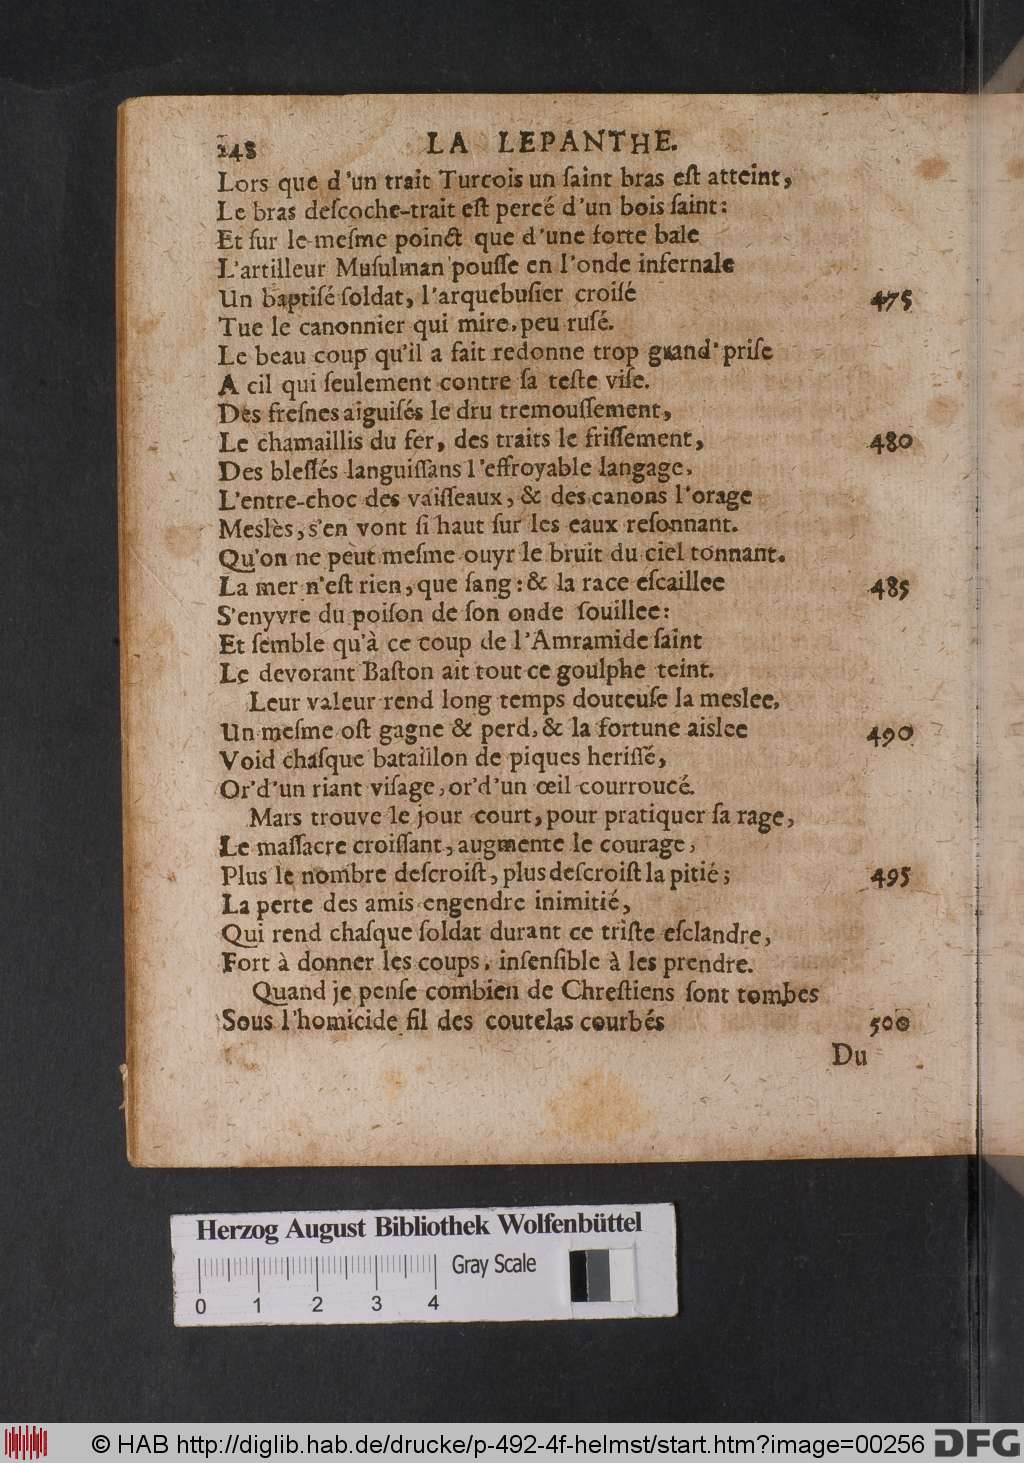 248 LA LEPANTHE.
Lors que d'un trait Turcois un ſaint bras eſt atteint,
Le bras deſcoche-trait eſt percé d'un bois ſaint:
Et ſur le meſme poinct que d'une forte bale
L'artilleur Muſulman pouſſe en l'onde infernale
Un baptiſé ſoldat, l'arquebuſier croiſé 475
Tue le canonnier qui mire, peu ruſé.
Le beau coup qu'il a fait redonne trop grand' priſe
A cil qui ſeulement contre ſa teſte viſe.
Des freſnes aiguiſés le dru tremouſſement,
Le chamaillis du fer, des traits le friſſement, 480
Des bleſſés languiſſans l'effroyable langage,
L'entre-choc des vaiſſeaux, & des canons l'orage
Meslès, s'en vont ſi haut ſur les eaux reſonnant.
Qu'on ne peut meſme ouyr le bruit du ciel tonnant.
La mer n'eſt rien, que ſang: & la race eſcaillee 485
S'enyvre du poiſon de ſon onde ſouillee:
Et ſemble qu'à ce coup de l'Amramide ſaint
Le devorant Baſton ait tout ce goulphe teint.
Leur valeur rend long temps douteuſe la meslee,
Un meſme oſt gagne & perd, & la fortune aislee 490
Void chaſque bataillon de piques heriſſé,
Or' d'un riant viſage, or' d'un œil courroucé.
Mars trouve le jour court, pour pratiquer ſa rage,
Le maſſacre croiſſant, augmente le courage,
Plus le nombre deſcroiſt, plus deſcroiſt la pitié; 495
La perte des amis engendre inimitié,
Qui rend chaſque ſoldat durant ce triſte eſclandre,
Fort à donner les coups, inſenſible à les prendre.
Quand je penſe combien de Chreſtiens ſont tombes
Sous l'homicide fil des coutelas courbés 500
Du
Herzog August Bibliothek Wolfenbüttel
Gray Scale
0 1 2 3 4
© HAB http://diglib.hab.de/drucke/p-492-4f-helmst/start.htm?image=00256 DFG